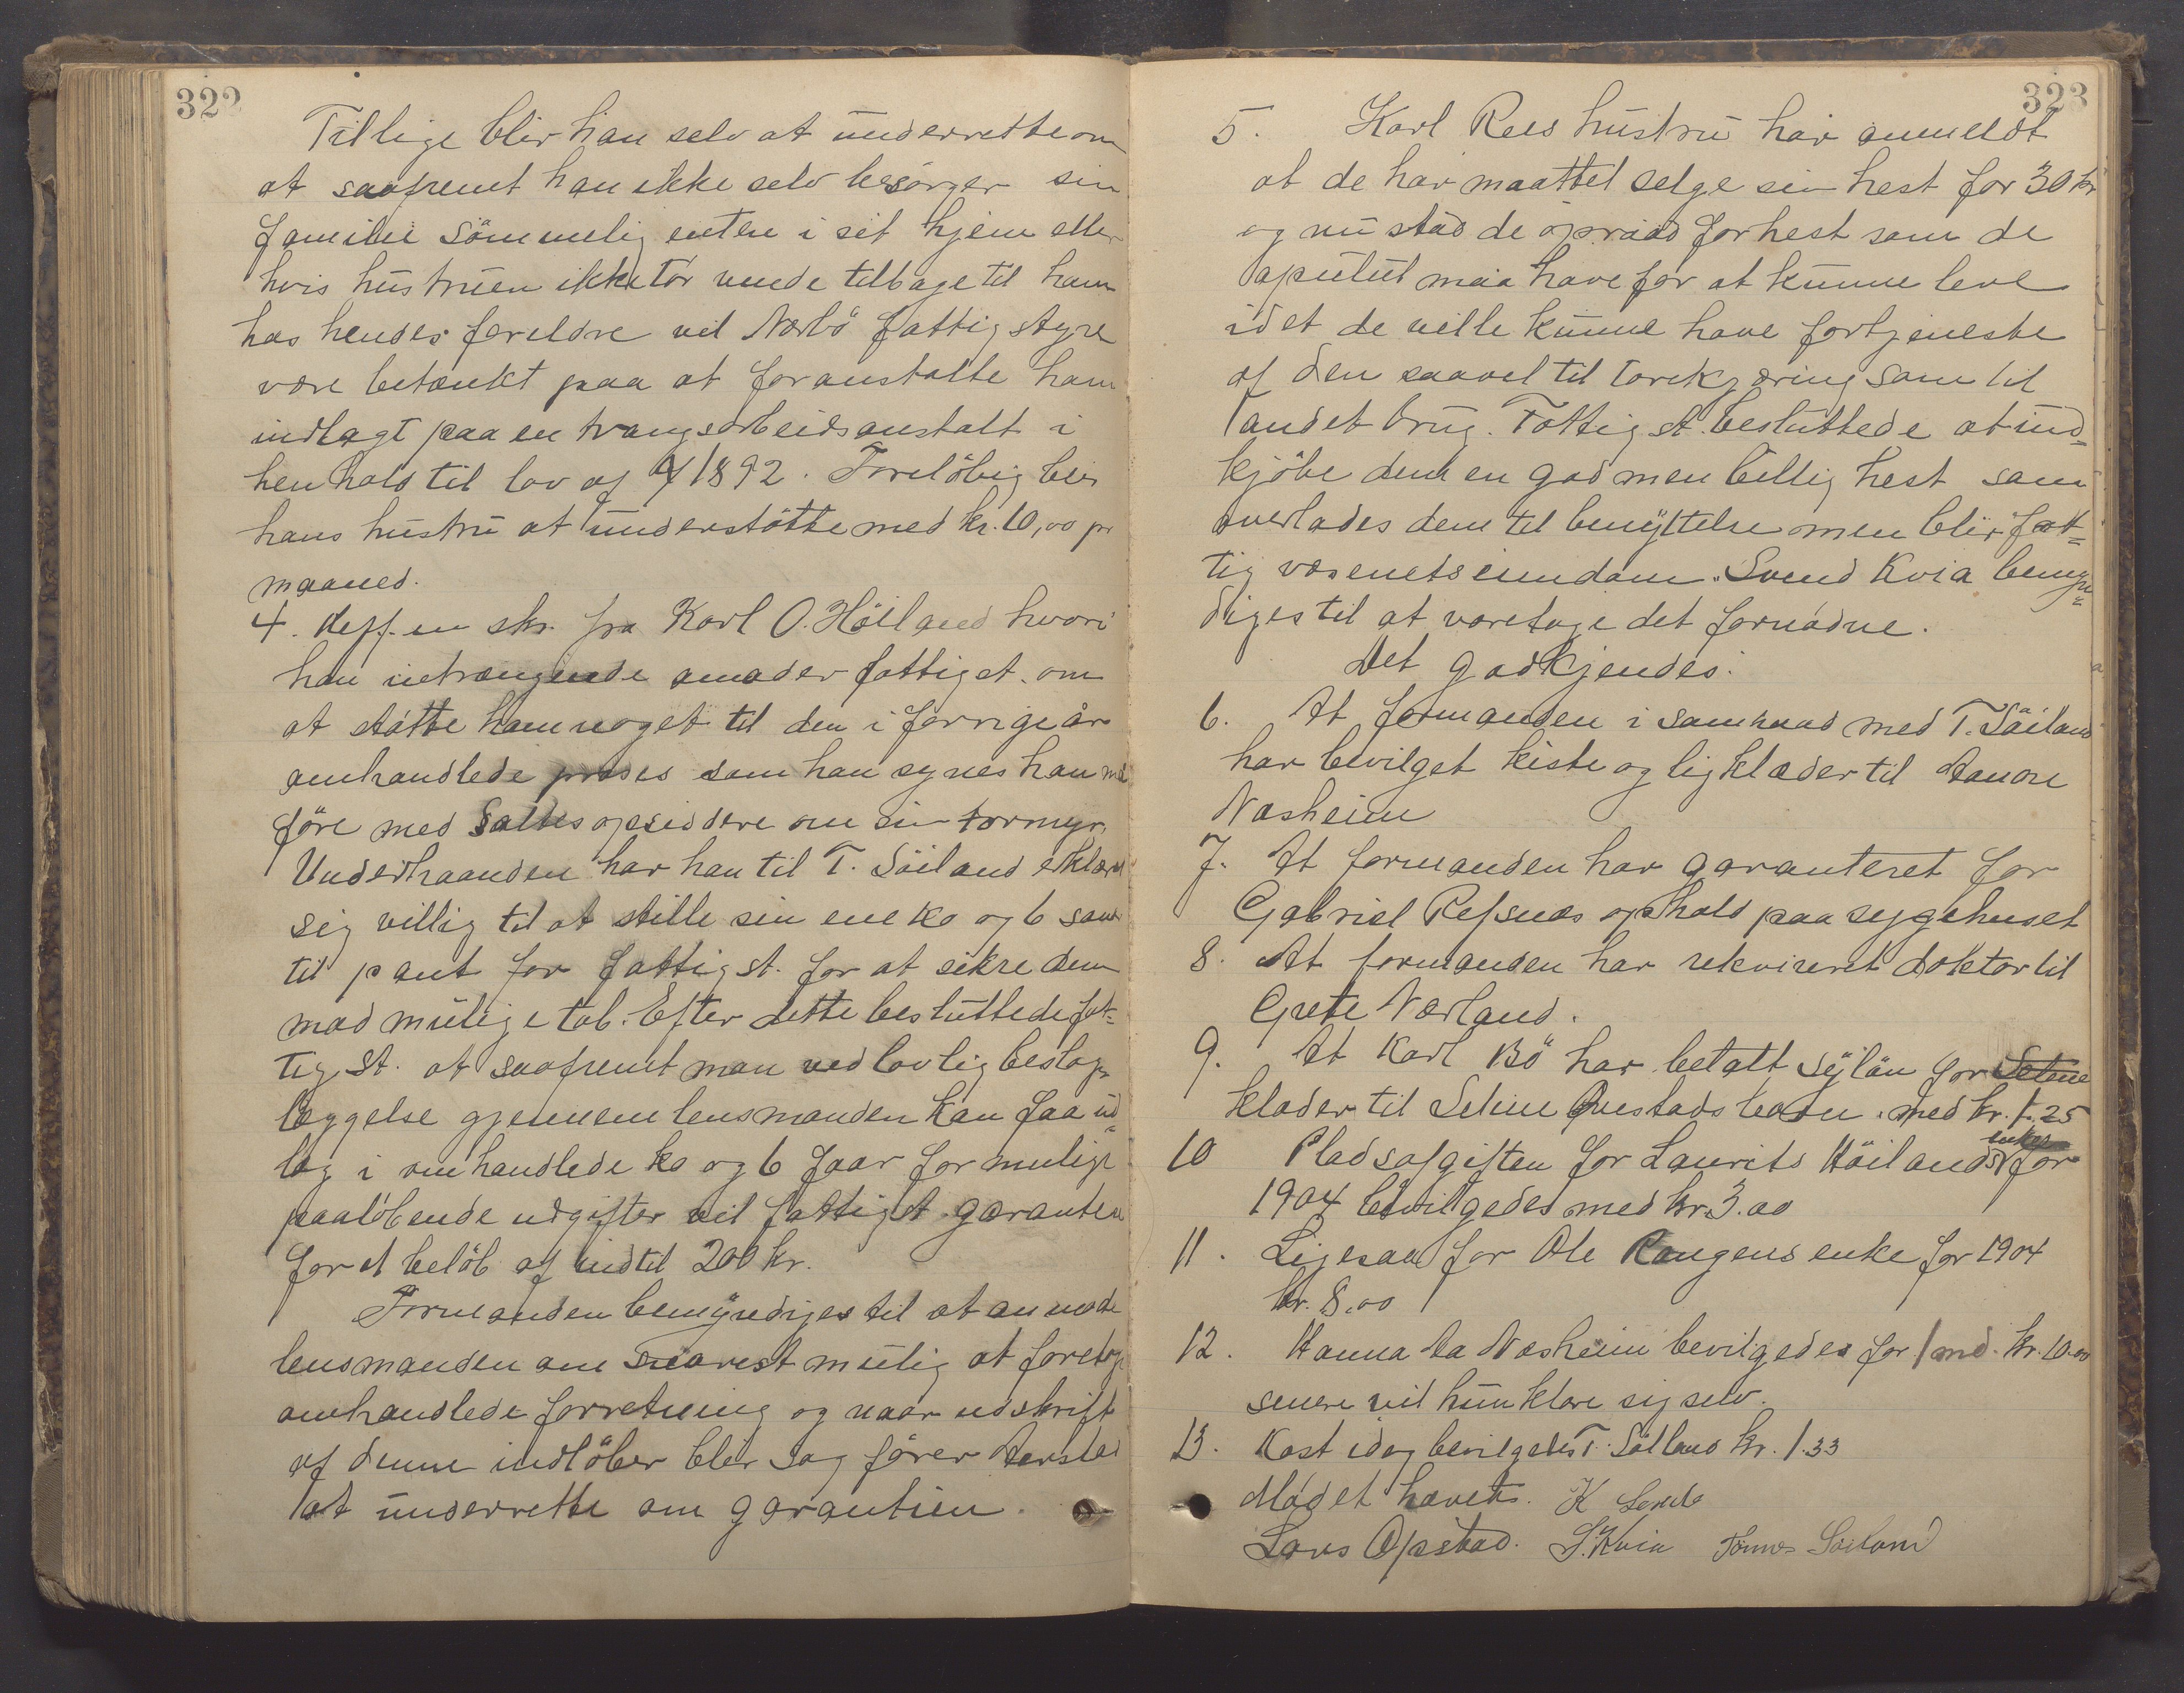 322
Tillige blir han selv at underrette om
at saafremt han ikke selv besörger sin
familie sömmelig enten i sit hjem eller
hvis hustruen ikke tör vende tilbage til ham
hos hendes foreldre vil Nærbö fattigstyre
være betænkt paa at foranstalte ham
indlagt paa en tvangsarbeidsanstalt i
henhold til lov af 1892. Forelöbig blir
hans hustru at understötte med kr. 10,00 pr
maaned.
4. en skr. fra Karl O. Höiland hvori
han indtrængende anmoder fattigst. om
at stötte ham noget til den i forrige år
omhandlede proses som han synes han maa
före med Salthes opsiddere om sin tormyr.
Underhaanden har han til T. Söiland erklært
sig villig til at stille sin ene ko og 6 sauer
til pant for fattigst. for at sikre dem
mod mulige tab. Efter dette besluttede fat=
tigst. at saafremt man ved lovlig beslag=
læggelse gjennem lensmanden kan faa ud=
læg i omhandlede ko og 6 faar for mulige
paalöbende udgifter vil fattigst. garantere
for et belöb af indtil 200 kr.
Formanden bemyndiges til at anmode
lensmanden om snarest mulig at foretage
omhandlede forretning og naar udskrift
af denne indlöber blir sagförer Aarstad
at underrette om garantien.
323
5. Karl Rees hustru har anmeldt
at de har maattet selge sin hest for 30 kr
og nu stod de opraad for hest som de
absolut maa have for at kunne leve
idet de ville kunne have fortjeneste
af den saavel til torvkjöring som til
andet brug. Fattigst. besluttede at ind=
kjöbe dem en god men billig hest som
overlades dem til benyttelse men blir fat=
tigvæsenets eiendom. Svend Kvia bemyn=
diges til at varetage det fornödne.
Det godkjendes:
6. At formanden i samraad med T. Söiland
har bevilget kiste og ligklæder til
Næsheim
7. At formanden har garanteret for
Gabriel Refsnæs ophold paa sygehuset
8. At formanden har rekvireret doktor til
Grete Nærland.
9. At Karl Bö har betalt sylön for Seline
klæder til Seline Qvestads barn med kr. 1.25
10 Pladsafgiften for Laurits Höilands enke for
1904 bevilgedes med kr. 3.00
11. Ligesaa for Ole Raugens enke for 1904
kr. 8.00
12. Hanna Næsheim bevilgedes for 1 md. kr. 10.00
senere vil hun klare sig selv.
13. Kost idag bevilgedes T. Söiland kr. 1.33
Mödet hævet. K Lende
Lars Opstad. S. Kvia Tönnes Söiland